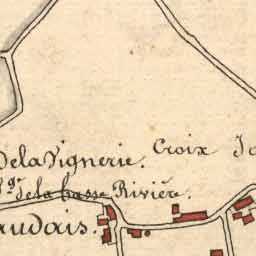 Dela Vignerie.
Croix Ja
Vge. de la basse Rivière.
audais.